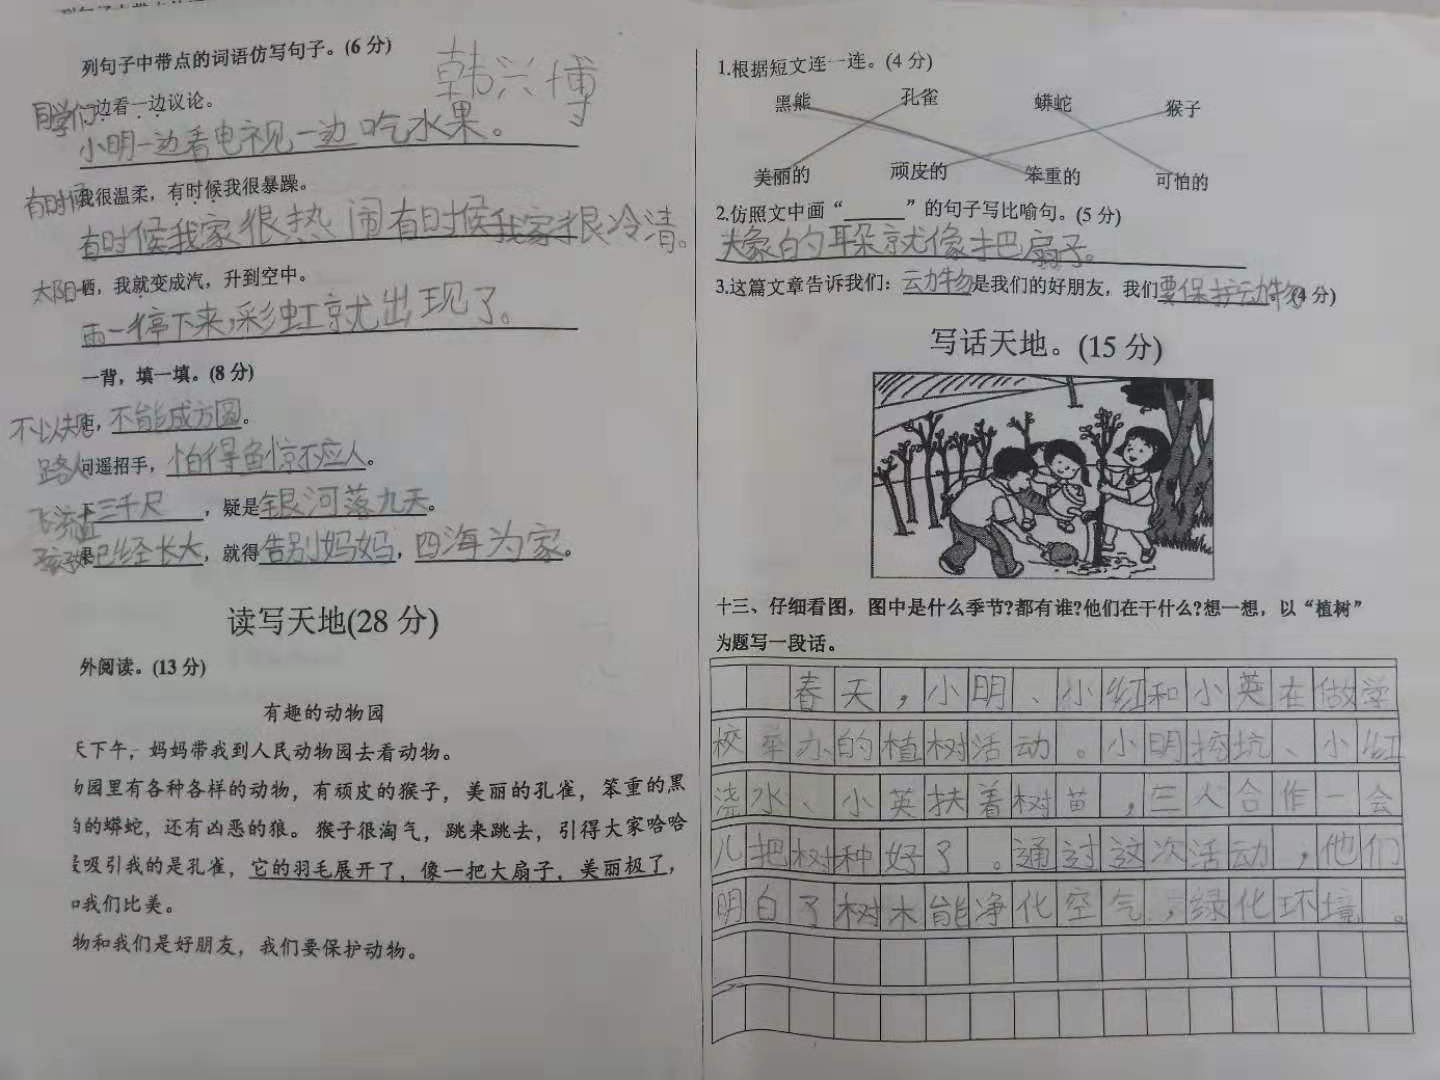 列句子中带点的词语仿写句子。(6分)
韩兴博
同学们边看一边议论。
小明一边看电视一边吃水果。
有时候我很温柔，有时候我很暴躁。
有时候我家很热闹有时候我家很冷清。
太阳一晒，我就变成汽，升到空中。
雨一停下来，彩虹就出现了。
一背，填一填。(8分)
不以规矩，不能成方圆。
路人问遥招手，怕得鱼惊不应人。
飞流直下三千尺，疑是银河落九天。
孩子如果已经长大，就得告别妈妈，四海为家。
读写天地(28分)
外阅读。(13分)
有趣的动物园
天下午，妈妈带我到人民动物园去看动物。
物园里有各种各样的动物，有顽皮的猴子，美丽的孔雀，笨重的黑
的蟒蛇，还有凶恶的狼。猴子很淘气，跳来跳去，引得大家哈哈
吸引我的是孔雀，它的羽毛展开了，像一把大扇子，美丽极了，
和我们比美。
物和我们是好朋友，我们要保护动物。
1.根据短文连一连。(4分)
黑熊 孔雀 蟒蛇 猴子
美丽的 顽皮的 笨重的 可怕的
2.仿照文中画“______”的句子写比喻句。(5分)
大象的耳朵就像把扇子。
3.这篇文章告诉我们：动物是我们的好朋友，我们要保护动物。(4分)
写话天地。(15分)
十三、仔细看图，图中是什么季节?都有谁?他们在干什么?想一想，以“植树”
为题写一段话。
春天，小明、小红和小英在做学
校举办的植树活动。小明挖坑、小红
浇水、小英扶着树苗，三人合作一会
儿把树种好了。通过这次活动，他们
明白了树木能净化空气，绿化环境。